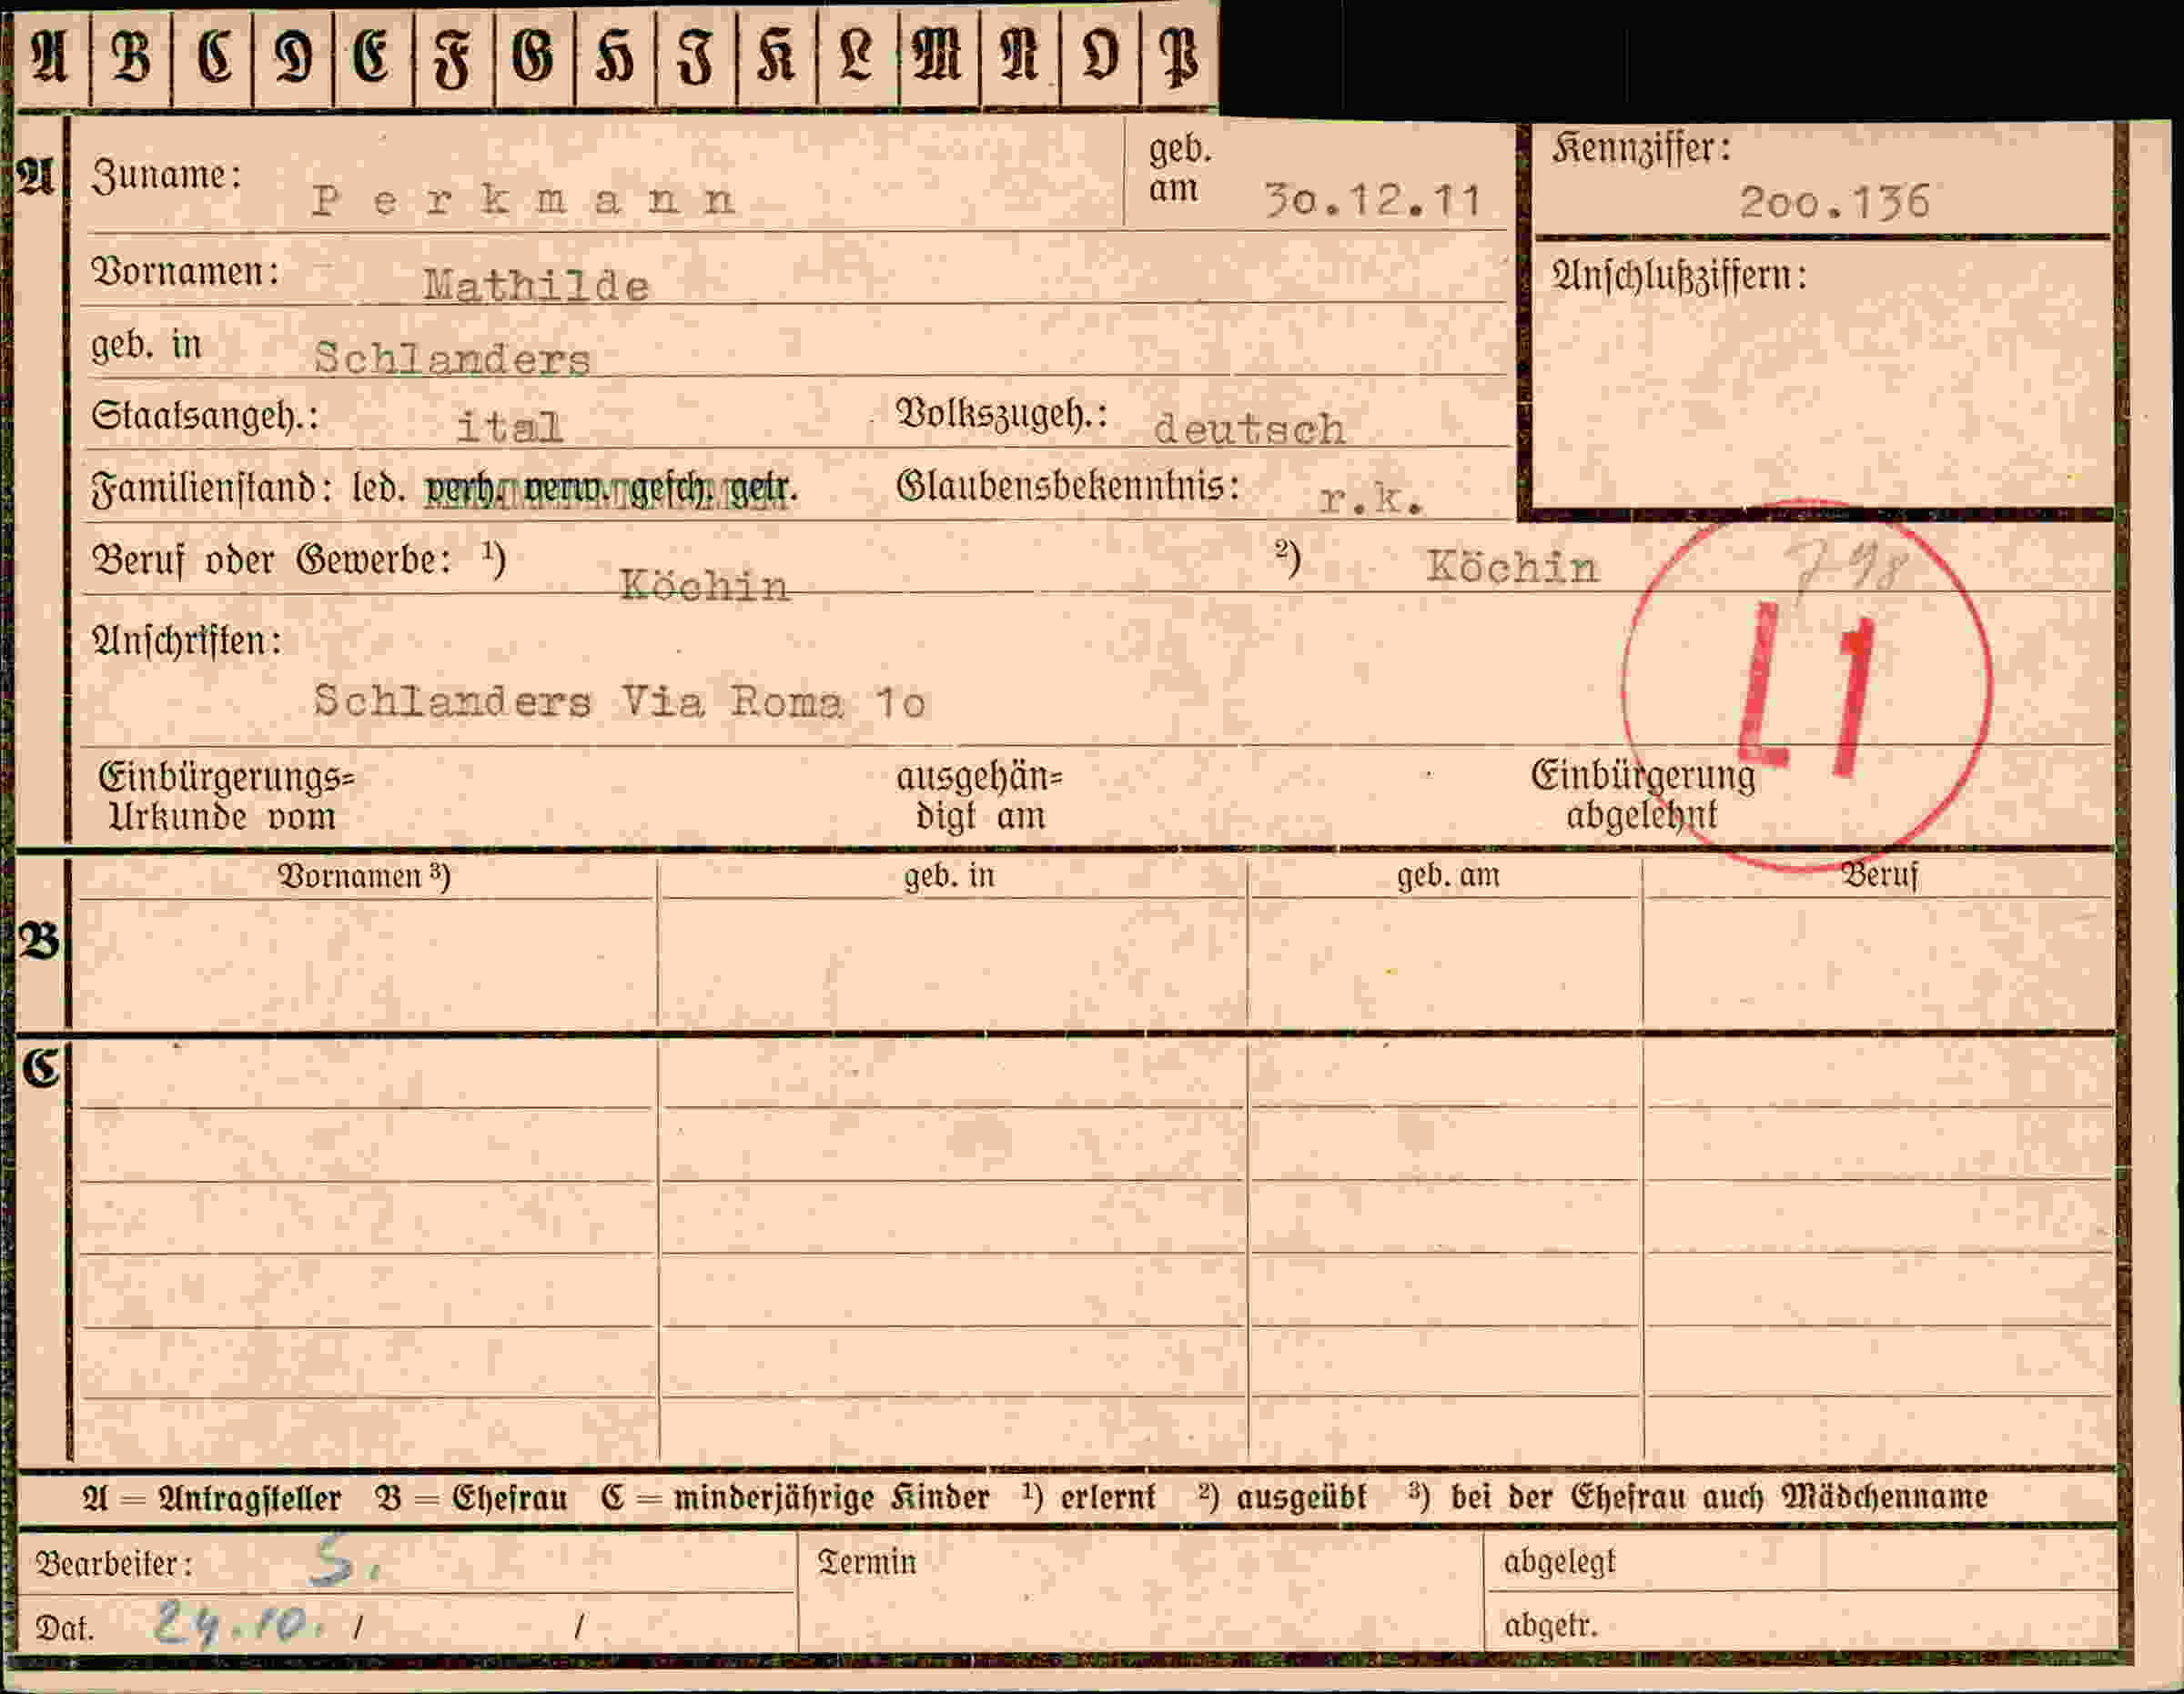 A B C D E F G H J K L M N O P
A Zuname: Perkmann geb. am 30.12.11 Kennziffer: 200.136
Vornamen: Mathilde Anschlußziffern:
geb. in Schlanders
Staatsangeh.: ital Volkszugeh.: deutsch
Familienstand: led. verh. verw. gesch. getr. Glaubensbekenntnis: r.k.
Beruf oder Gewerbe: ¹) Köchin ²) Köchin 798
Anschriften: L1
Schlanders Via Roma 1o
Einbürgerungs= ausgehän= Einbürgerung
Urkunde vom digt am abgelehnt
Vornamen ³) geb. in geb. am Beruf
B
C
A = Antragsteller B = Ehefrau C = minderjährige Kinder ¹) erlernt ²) ausgeübt ³) bei der Ehefrau auch Mädchenname
Bearbeiter: S. Termin abgelegt
Dat. 24.10. / / abgetr.